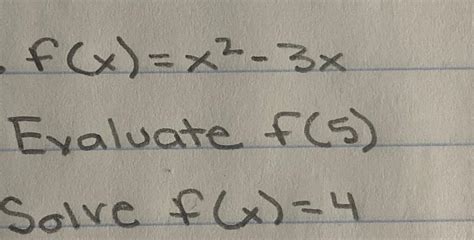 . f(x) = x² - 3x
Evaluate f(5)
Solve f(x) = 4